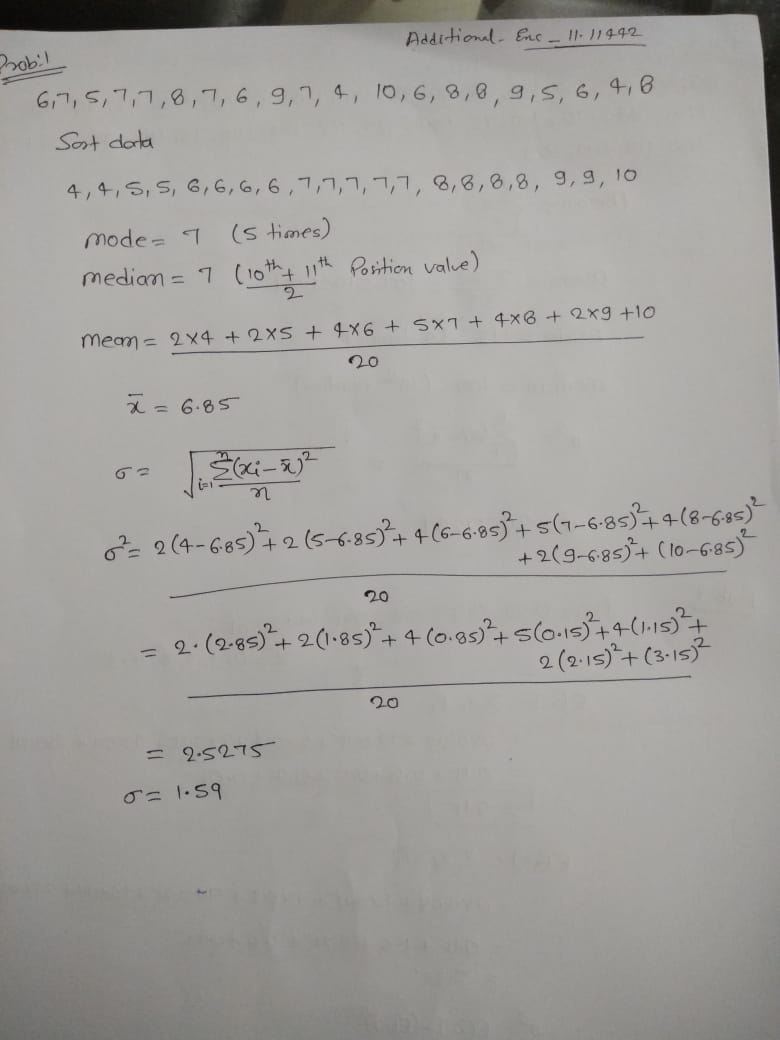 Additional- Enc - 11.11442
Prob:1
6,7,5,7,7,8,7,6,9,7,4,10,6,8,8,9,5,6,4,8
Sort data
4,4,5,5,6,6,6,6,7,7,7,7,7,8,8,8,8,9,9,10
mode = 7 (5 times)
median = 7 (10th + 11th / 2 Position value)
mean = 2×4 + 2×5 + 4×6 + 5×7 + 4×8 + 2×9 +10
20
x̄ = 6.85
σ = √ Σ(xi-x̄)²
i=1 n
σ² = 2(4-6.85)² + 2(5-6.85)² + 4(6-6.85)² + 5(7-6.85)² + 4(8-6.85)²
+2(9-6.85)² + (10-6.85)²
20
= 2.(2.85)² + 2(1.85)² + 4(0.85)² + 5(0.15)² + 4(1.15)² +
2(2.15)² + (3.15)²
20
= 2.5275
σ = 1.59